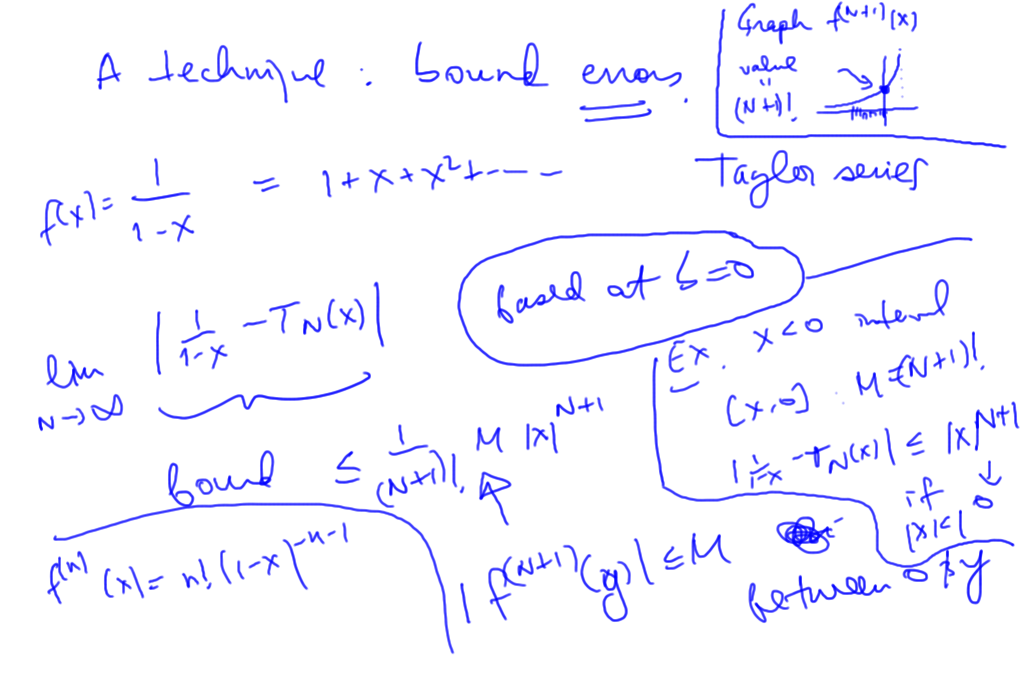 A technique : bound errors.
Graph f^(N+1)(x)
value
"
(N+1)!
f(x) = 1/(1-x) = 1+x+x²+----
Taylor series
based at b=0
lim N→∞ |1/(1-x) - T_N(x)|
bound ≤ 1/(N+1)! M |x|^(N+1)
Ex. x<0 interval
[x,0] : M=(N+1)!
|1/(1-x) - T_N(x)| ≤ |x|^(N+1)
↓
if 0
|x|<1
f^(n)(x) = n! (1-x)^(-n-1)
|f^(N+1)(y)| ≤ M
between 0 & y